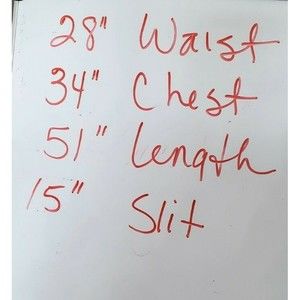 28" Waist
34" Chest
51" Length
15" Slit